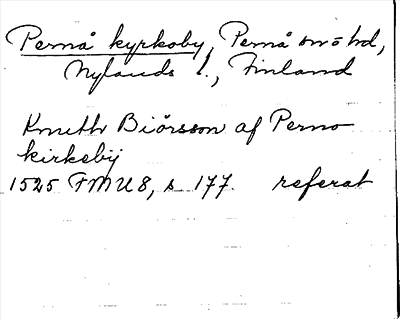 Pernå kyrkoby, Pernå sn o hd,
Nylands l., Finland
Knuth Biörsson af Perno
kirkebÿ
1525 FMU 8, s 177. referat